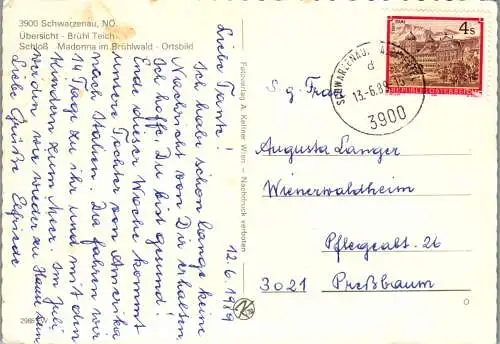 3900 Schwarzenau, NÖ.
Übersicht · Brühl Teich
Schloß · Madonna im Brühlwald · Ortsbild
12. 6. 1989
Liebe Tante!
Ich habe schon lange keine
Nachricht von Dir erhalten,
ich hoffe, Du bist gesund!
Ende dieser Woche kommt
unsere Tochter von Amerika
nach Italien. Da fahren wir
14 Tage zu ihr und mit den
Kindern zum Meer. Im Juli
werden wir wieder zu Hause sein
Liebe Grüße
Fotoverlag A. Kellner Wien – Nachdruck verboten
4 S
REPUBLIK ÖSTERREICH
SCHWARZENAU,
d
13.-6.89.-
3900
S. g. Frau
Augusta Langer
Wienerwaldheim
Pflegeabt. 26
3021 Preßbaum